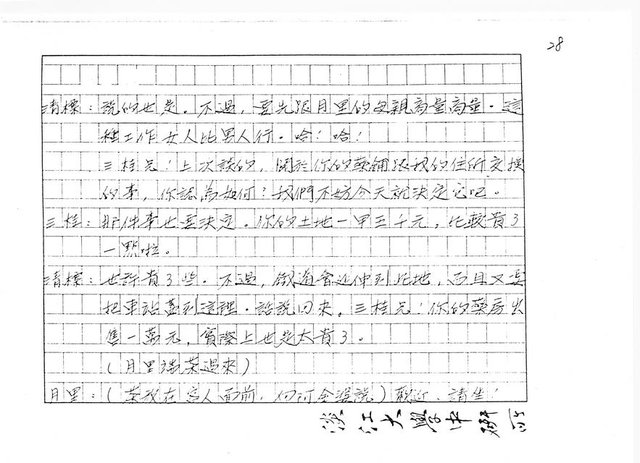 28
清標：說的也是。不過，要先跟月里的母親商量商量。這
種工作女人比男人行。哈！哈！
三桂兄！上次談的，關於你的藥鋪跟我的住所交換
的事，你認為如何？我們不妨今天就決定它吧。
三桂：那件事也要決定。你的土地一甲三千元，比較貴了
一點啦。
清標：也許貴了些。不過，鐵道會延伸到此地，而且又要
把車站蓋到這裡。話說回來，三桂兄！你的藥房出
售一萬元，實際上也是太貴了。
（月里端茶過來）
月里：（茶放在客人面前，
請坐！
淡江大學中研所